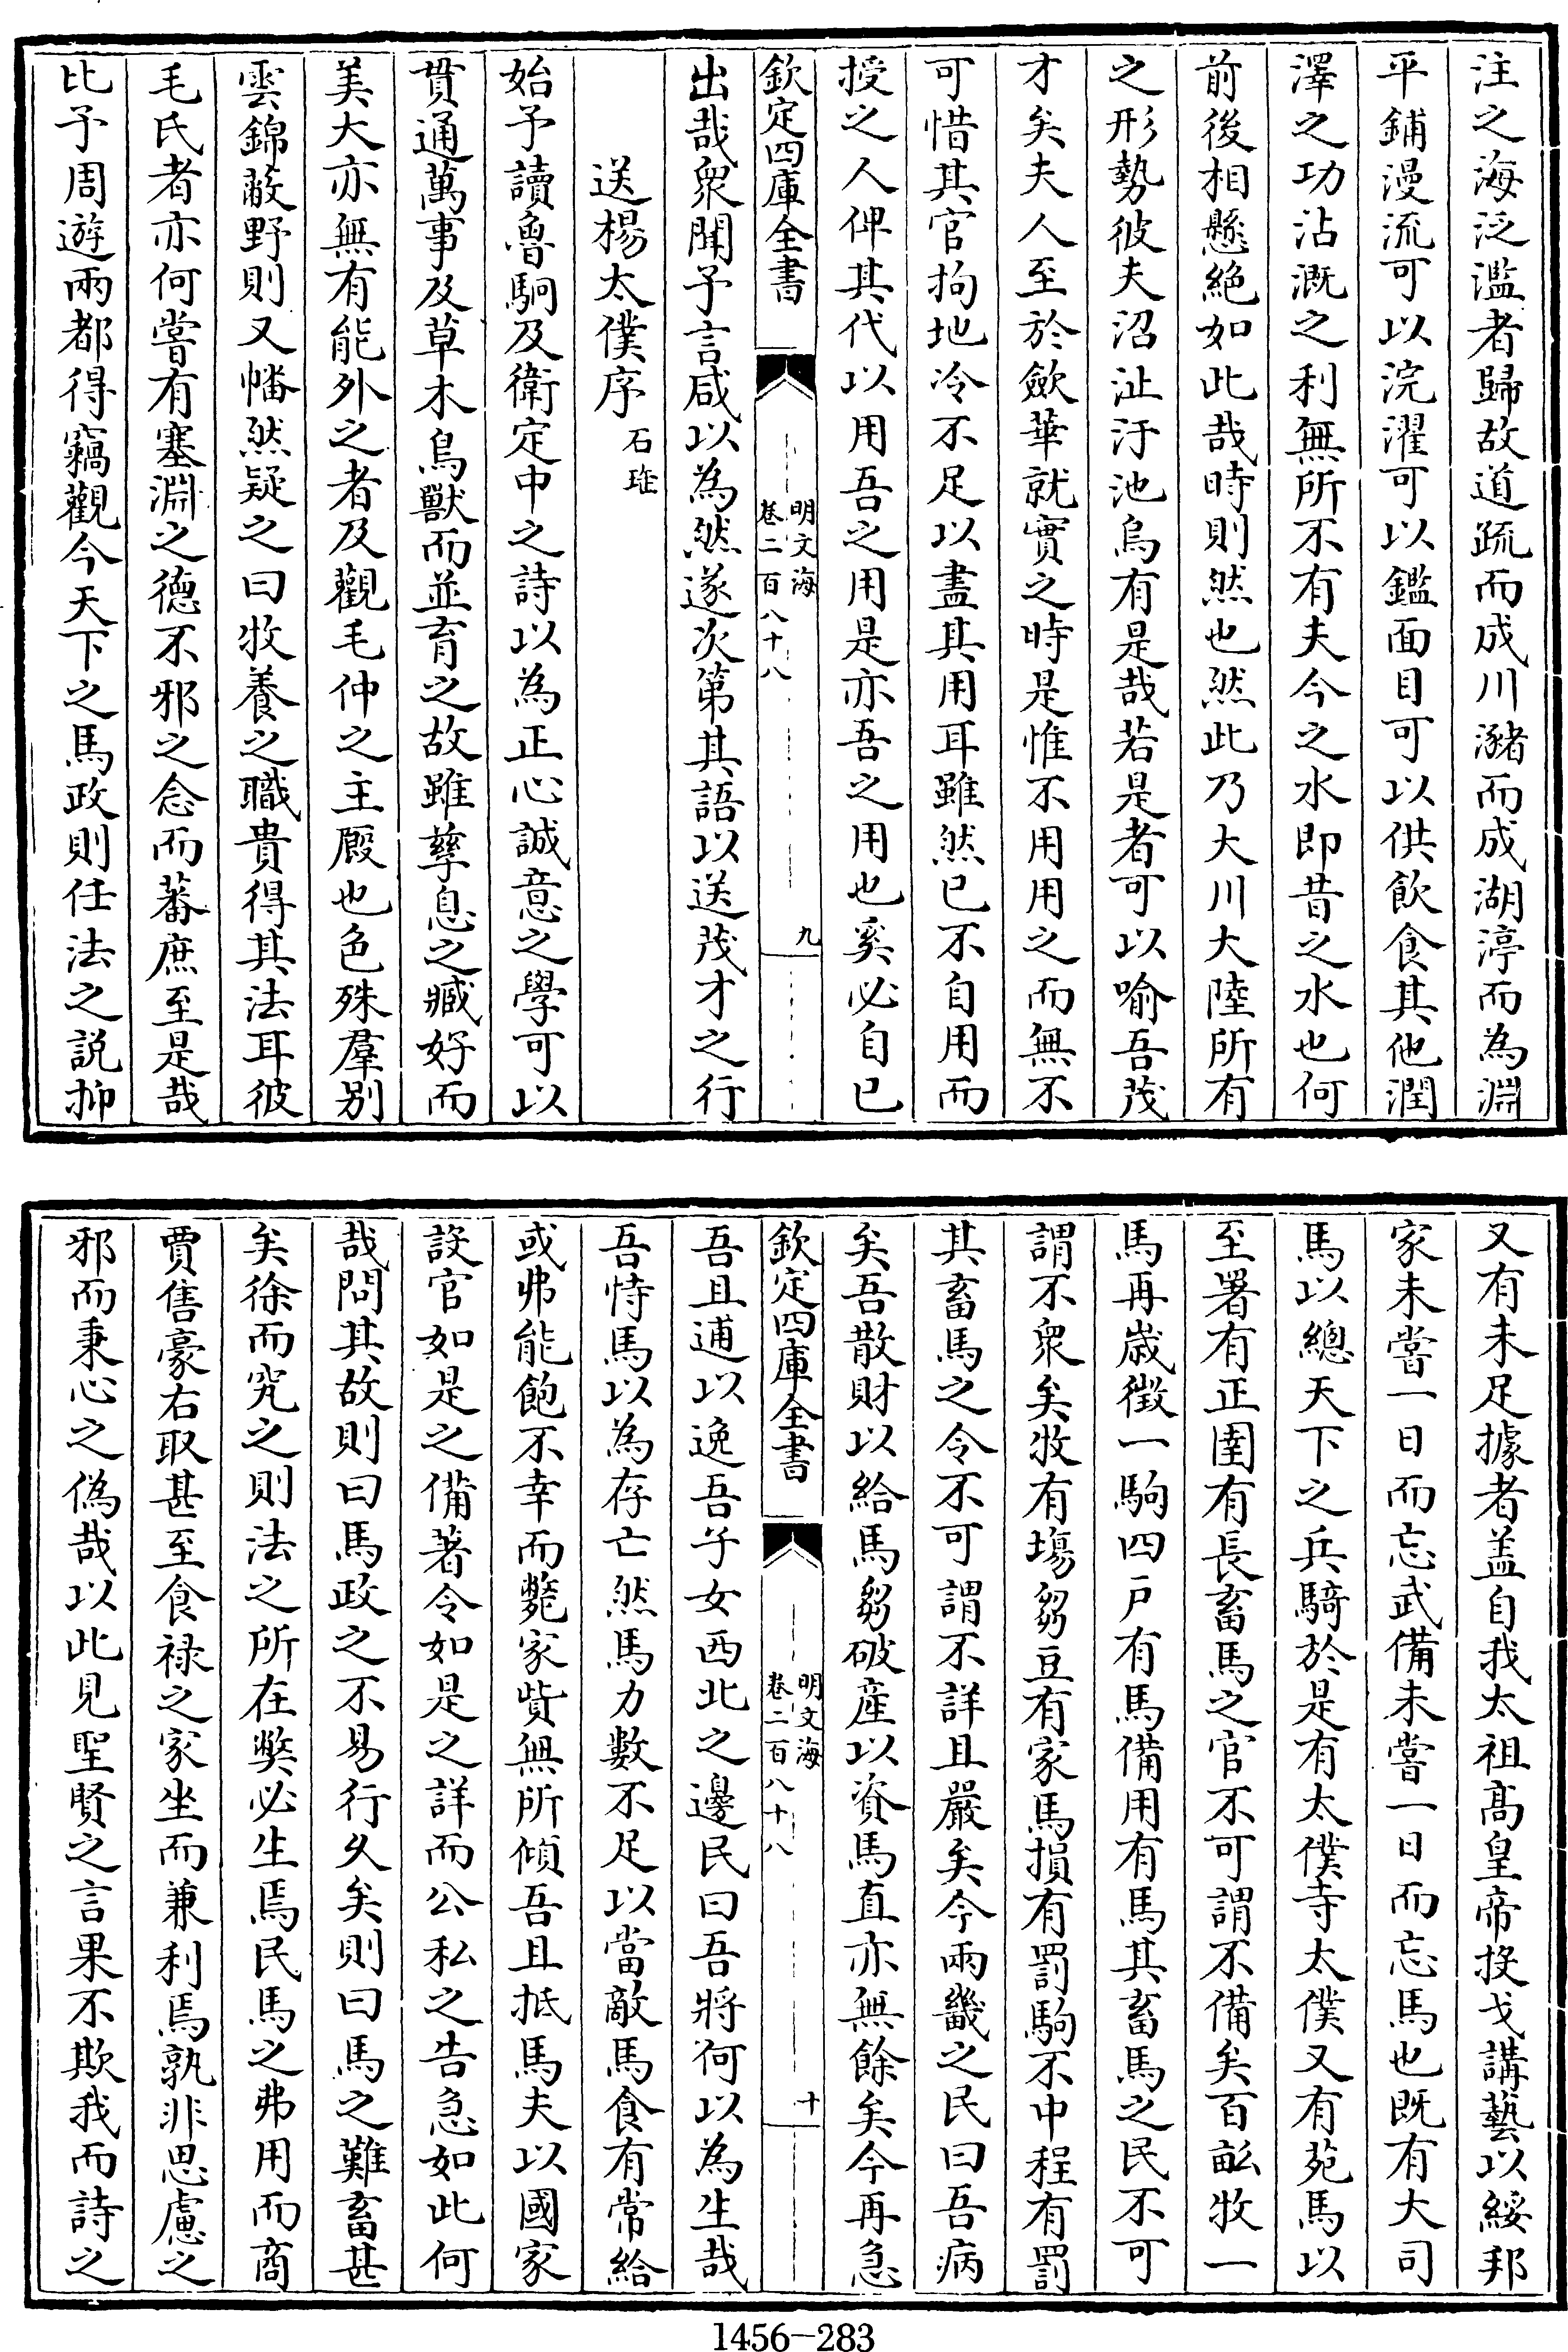 注之海泛濫者歸故道疏而成川瀦而成湖渟而為淵
平鋪漫流可以浣濯可以鑑面目可以供飲食其他潤
澤之功沾溉之利無所不有夫今之水即昔之水也何
前後相懸絶如此哉時則然也然此乃大川大陸所有
之形勢彼夫沼沚汙池烏有是哉若是者可以喻吾茂
才矣夫人至於歛華就實之時是惟不用用之而無不
可惜其官拘地冷不足以盡其用耳雖然已不自用而
授之人俾其代以用吾之用是亦吾之用也奚必自已
欽定四庫全書
明文海
卷二百八十八
九
出哉衆聞予言咸以為然遂次第其語以送茂才之行
送楊太僕序 石珤
始予讀魯駉及衛定中之詩以為正心誠意之學可以
貫通萬事及草木鳥獸而並育之故雖孳息之臧好而
美大亦無有能外之者及觀毛仲之主廐也色殊羣别
雲錦蔽野則又幡然疑之曰牧養之職貴得其法耳彼
毛氏者亦何嘗有塞淵之德不邪之念而蕃庶至是哉
比予周遊兩都得竊觀今天下之馬政則任法之説抑
又有未足據者盖自我太祖高皇帝投戈講藝以綏邦
家未嘗一日而忘武備未嘗一日而忘馬也既有大司
馬以總天下之兵騎於是有太僕寺太僕又有苑馬以
至署有正圉有長畜馬之官不可謂不備矣百畝牧一
馬再歲徴一駒四戸有馬備用有馬其畜馬之民不可
謂不衆矣牧有塲芻豆有家馬損有罰駒不中程有罰
其畜馬之令不可謂不詳且嚴矣今兩畿之民曰吾病
矣吾散財以給馬芻破産以資馬直亦無餘矣今再急
欽定四庫全書
明文海
卷二百八十八
十
吾且逋以逸吾子女西北之邊民曰吾將何以為生哉
吾恃馬以為存亡然馬力數不足以當敵馬食有常給
或弗能飽不幸而斃家貲無所傾吾且抵馬夫以國家
設官如是之備著令如是之詳而公私之告急如此何
哉問其故則曰馬政之不易行久矣則曰馬之難畜甚
矣徐而究之則法之所在弊必生焉民馬之弗用而商
賈售豪右取甚至食禄之家坐而兼利焉孰非思慮之
邪而秉心之偽哉以此見聖賢之言果不欺我而詩之
1456-283